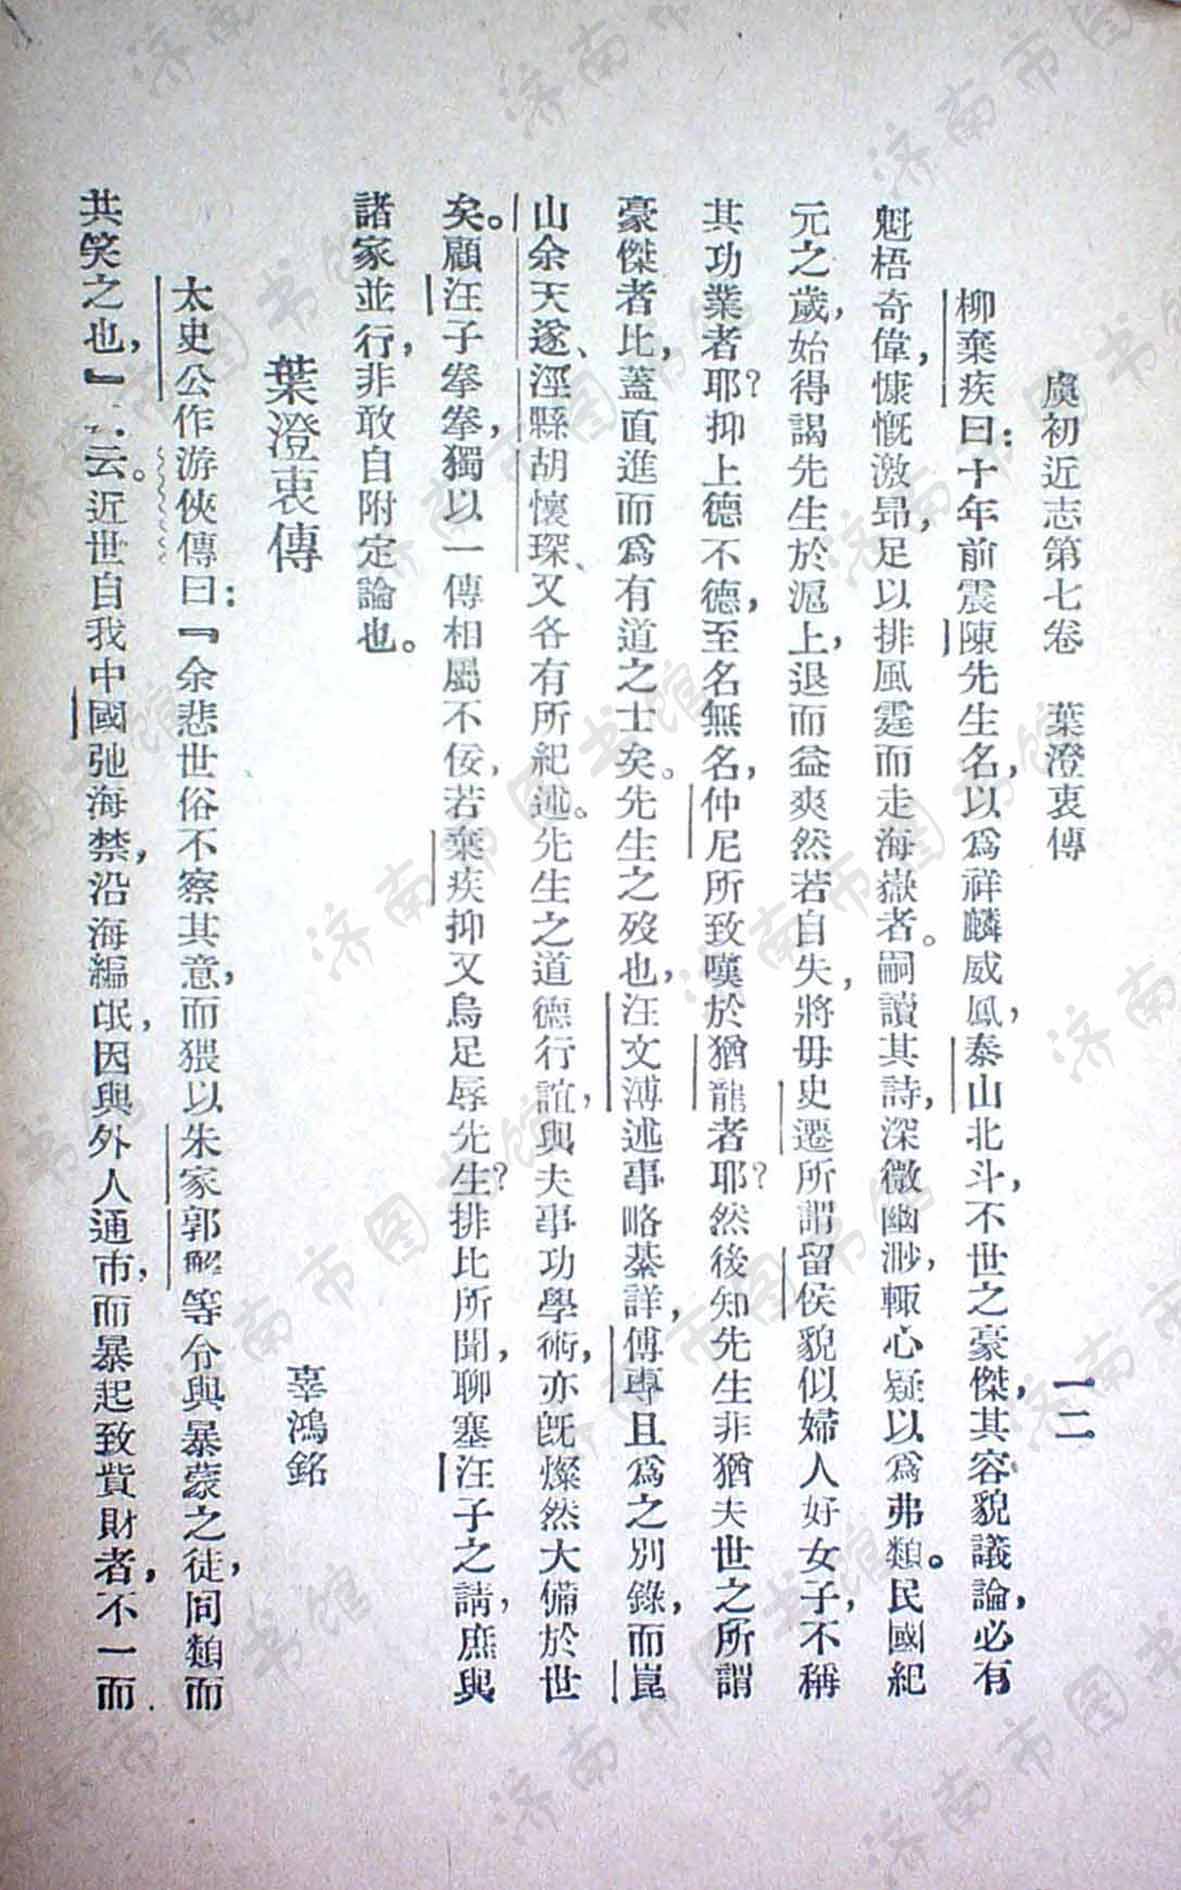 虞初近志第七卷　葉澄衷傳　一二
柳棄疾曰：十年前震陳先生名，以爲祥麟威鳳，泰山北斗，不世之豪傑，其容貌議論，必有
魁梧奇偉，慷慨激昂，足以排風霆而走海嶽者。嗣讀其詩，深微幽渺，輒心疑以爲弗類。民國紀
元之歲，始得謁先生於滬上，退而益爽然若自失，將毋史遷所謂留侯貌似婦人好女子，不稱
其功業者耶？抑上德不德，至名無名，仲尼所致嘆於猶龍者耶？然後知先生非猶夫世之所謂
豪傑者比，蓋直進而爲有道之士矣。先生之歿也，汪文溥述事略綦詳，傅專且爲之別錄，而崑
山余天遂、涇縣胡懷琛、又各有所紀述。先生之道德行誼，與夫事功學術，亦旣燦然大備於世
矣。顧汪子拳拳，獨以一傳相屬不佞，若棄疾抑又烏足辱先生？排比所聞，聊塞汪子之請，庶與
諸家並行，非敢自附定論也。
葉澄衷傳
辜鴻銘
太史公作游俠傳曰：『余悲世俗不察其意，而猥以朱家郭解等令與暴豪之徒，同類而
共笑之也，』云。近世自我中國弛海禁，沿海編氓，因與外人通市，而暴起致貲財者，不一而
济南市图书馆